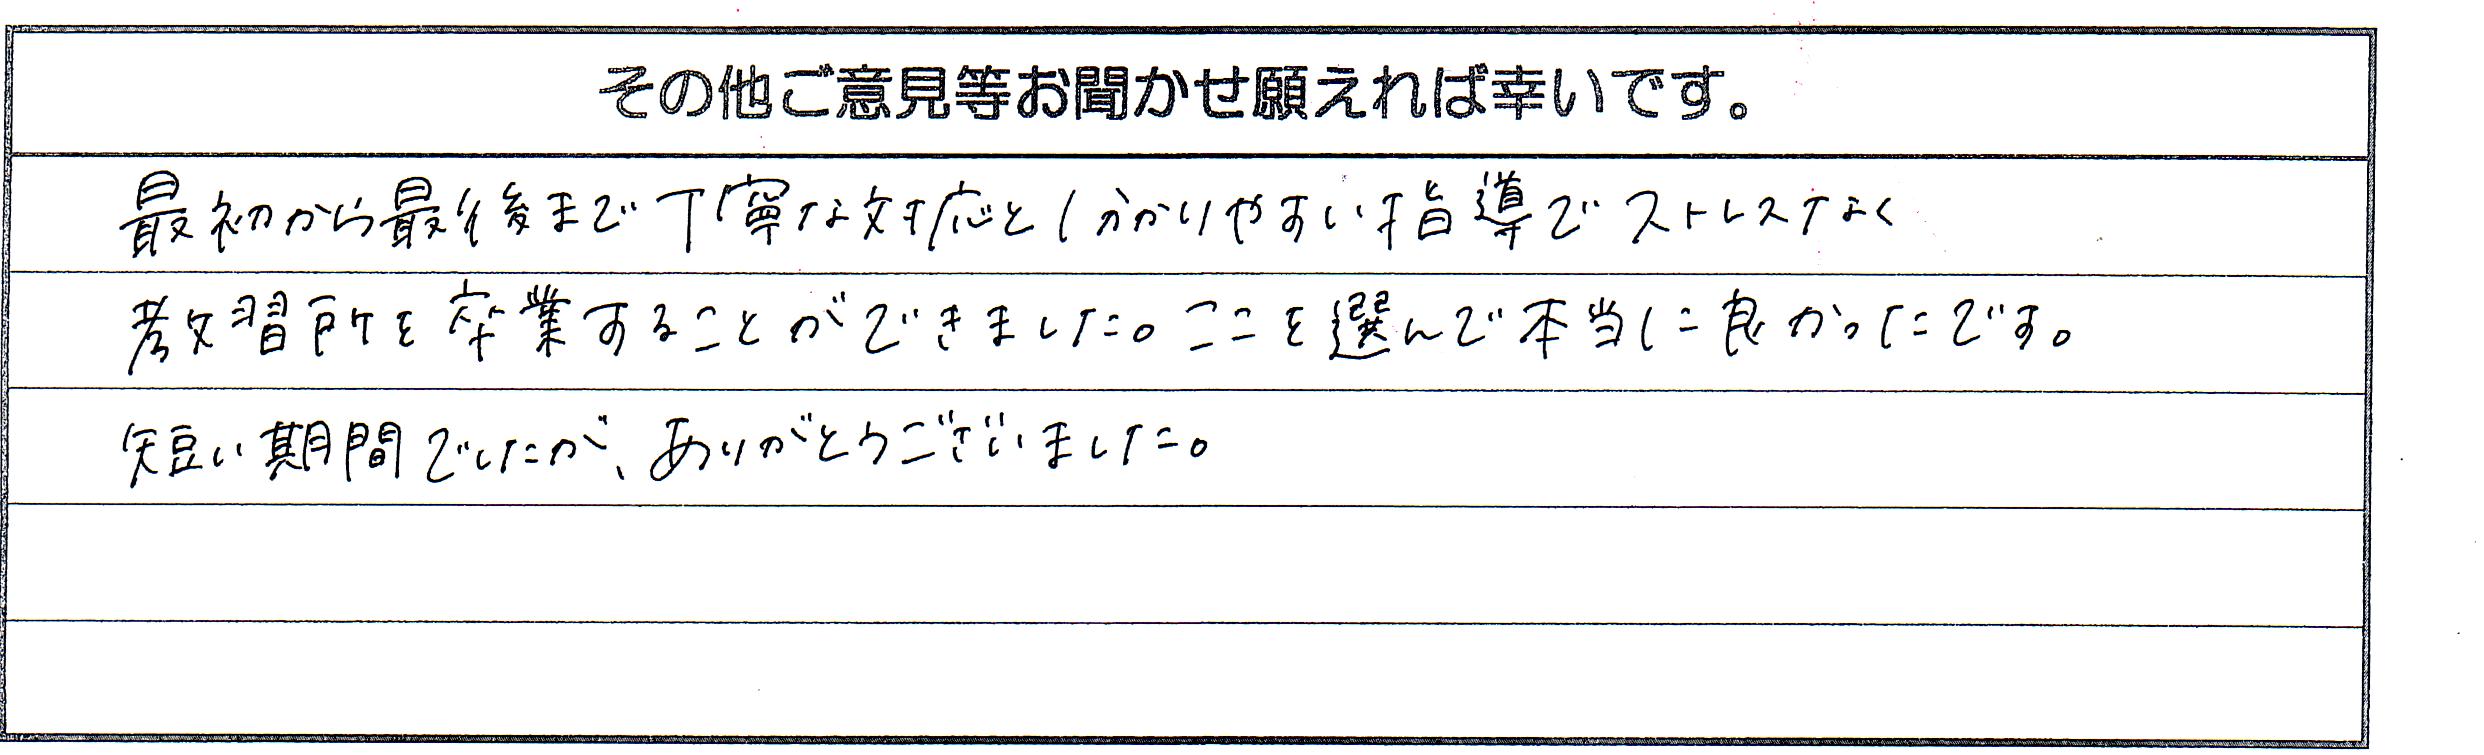 その他ご意見等お聞かせ願えれば幸いです。
最初から最後まで丁寧な対応と分かりやすい指導でストレスなく
教習所を卒業することができました。ここを選んで本当に良かったです。
短い期間でしたが、ありがとうございました。